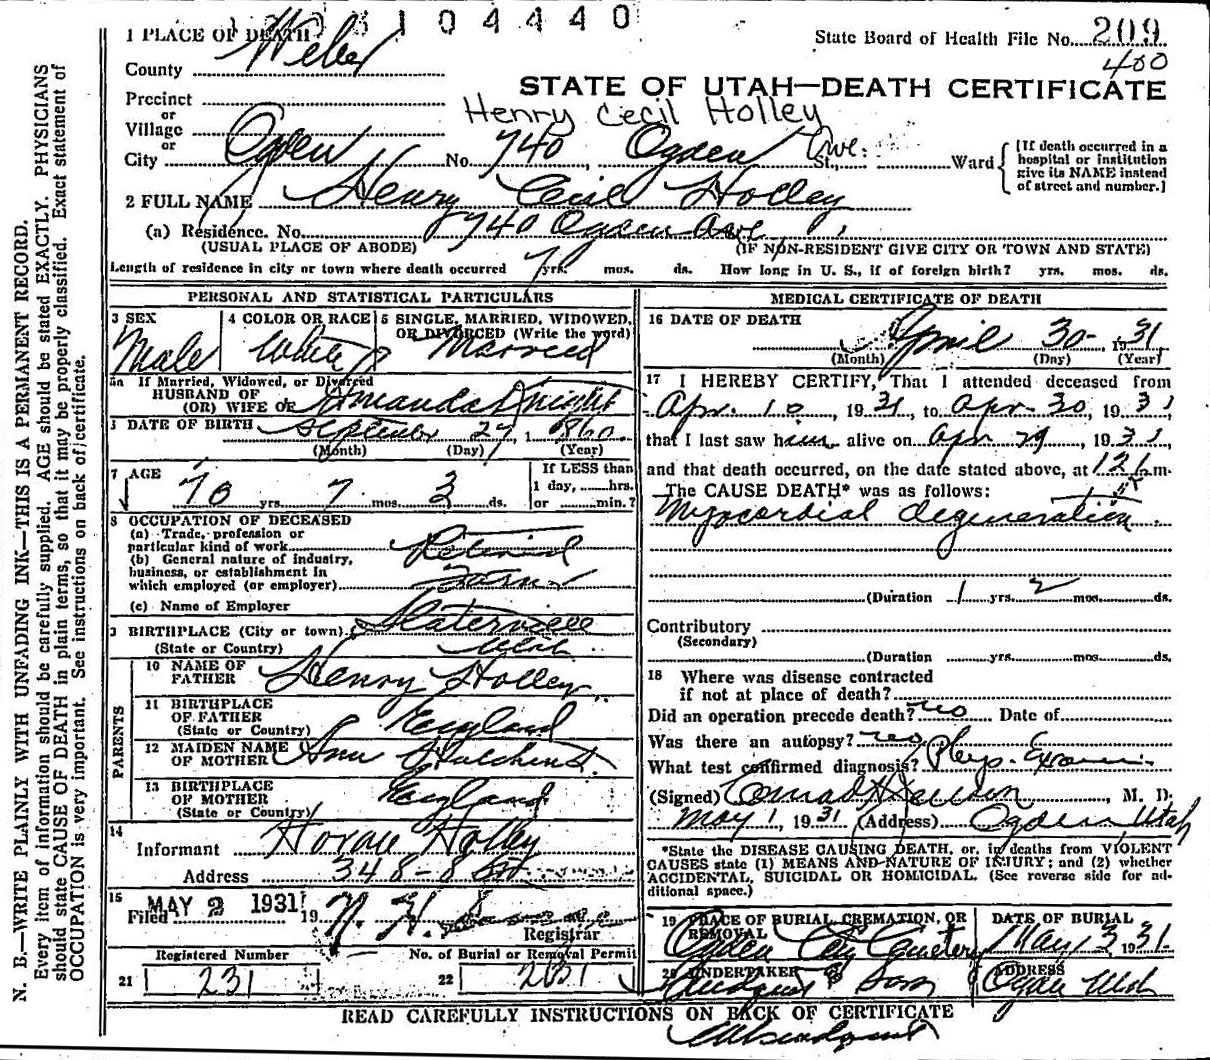 3104440
1 PLACE OF DEATH
State Board of Health File No. 209
400
County Weber
STATE OF UTAH—DEATH CERTIFICATE
Precinct
or
Henry Cecil Holley
Village
or
City Ogden No. 740 Ogden Ave. St., Ward
[If death occurred in a
hospital or institution
give its NAME instead
of street and number.]
2 FULL NAME Henry Cecil Holley
(a) Residence. No. 740 Ogden Ave
(USUAL PLACE OF ABODE) (IF NON-RESIDENT GIVE CITY OR TOWN AND STATE)
Length of residence in city or town where death occurred yrs. mos. ds. How long in U. S., if of foreign birth? yrs. mos. ds.
PERSONAL AND STATISTICAL PARTICULARS
3 SEX 4 COLOR OR RACE 5 SINGLE, MARRIED, WIDOWED,
OR DIVORCED (Write the word)
Male White Married
5a If Married, Widowed, or Divorced
HUSBAND OF
(OR) WIFE OF Amanda Knight
DATE OF BIRTH September 27, 1860
(Month) (Day) (Year)
7 AGE 70 yrs. 7 mos. 3 ds.
If LESS than
1 day, hrs.
or min.?
8 OCCUPATION OF DECEASED
(a) Trade, profession or
particular kind of work Retired
(b) General nature of industry,
business, or establishment in
which employed (or employer)
(c) Name of Employer
9 BIRTHPLACE (City or town) Slaterville
(State or Country) Utah
PARENTS
10 NAME OF
FATHER Henry Holley
11 BIRTHPLACE
OF FATHER England
(State or Country)
12 MAIDEN NAME
OF MOTHER Ann Hutchins
13 BIRTHPLACE
OF MOTHER England
(State or Country)
14
Informant Horace Holley
Address 348-8
15
Filed MAY 2 1931 19
Registrar
Registered Number No. of Burial or Removal Permit
21 231 22
MEDICAL CERTIFICATE OF DEATH
16 DATE OF DEATH
April 30- 1931
(Month) (Day) (Year)
17 I HEREBY CERTIFY, That I attended deceased from
Apr. 10, 1931, to Apr-30, 1931
that I last saw him alive on Apr 29, 1931
and that death occurred, on the date stated above, at m.
The CAUSE DEATH* was as follows:
Myocardial degeneration
(Duration 1 yrs. 2 mos. ds.
Contributory
(Secondary)
(Duration yrs. mos. ds.
18 Where was disease contracted
if not at place of death?
Did an operation precede death? no Date of
Was there an autopsy? no
What test confirmed diagnosis? Phys. Exam
(Signed) Conrad Jenson, M. D.
May 1, 1931 (Address) Ogden, Utah
*State the DISEASE CAUSING DEATH, or, in deaths from VIOLENT
CAUSES state (1) MEANS AND NATURE OF INJURY; and (2) whether
ACCIDENTAL, SUICIDAL OR HOMICIDAL. (See reverse side for ad-
ditional space.)
19 PLACE OF BURIAL, CREMATION, OR
REMOVAL
Ogden City Cemetery
DATE OF BURIAL
May 3 1931
20 UNDERTAKER
Lindquist & Sons
ADDRESS
Ogden Utah
READ CAREFULLY INSTRUCTIONS ON BACK OF CERTIFICATE
N. B.—WRITE PLAINLY WITH UNFADING INK—THIS IS A PERMANENT RECORD.
Every item of information should be carefully supplied. AGE should be stated EXACTLY. PHYSICIANS
should state CAUSE OF DEATH in plain terms, so that it may be properly classified. Exact statement of
OCCUPATION is very important. See instructions on back of certificate.